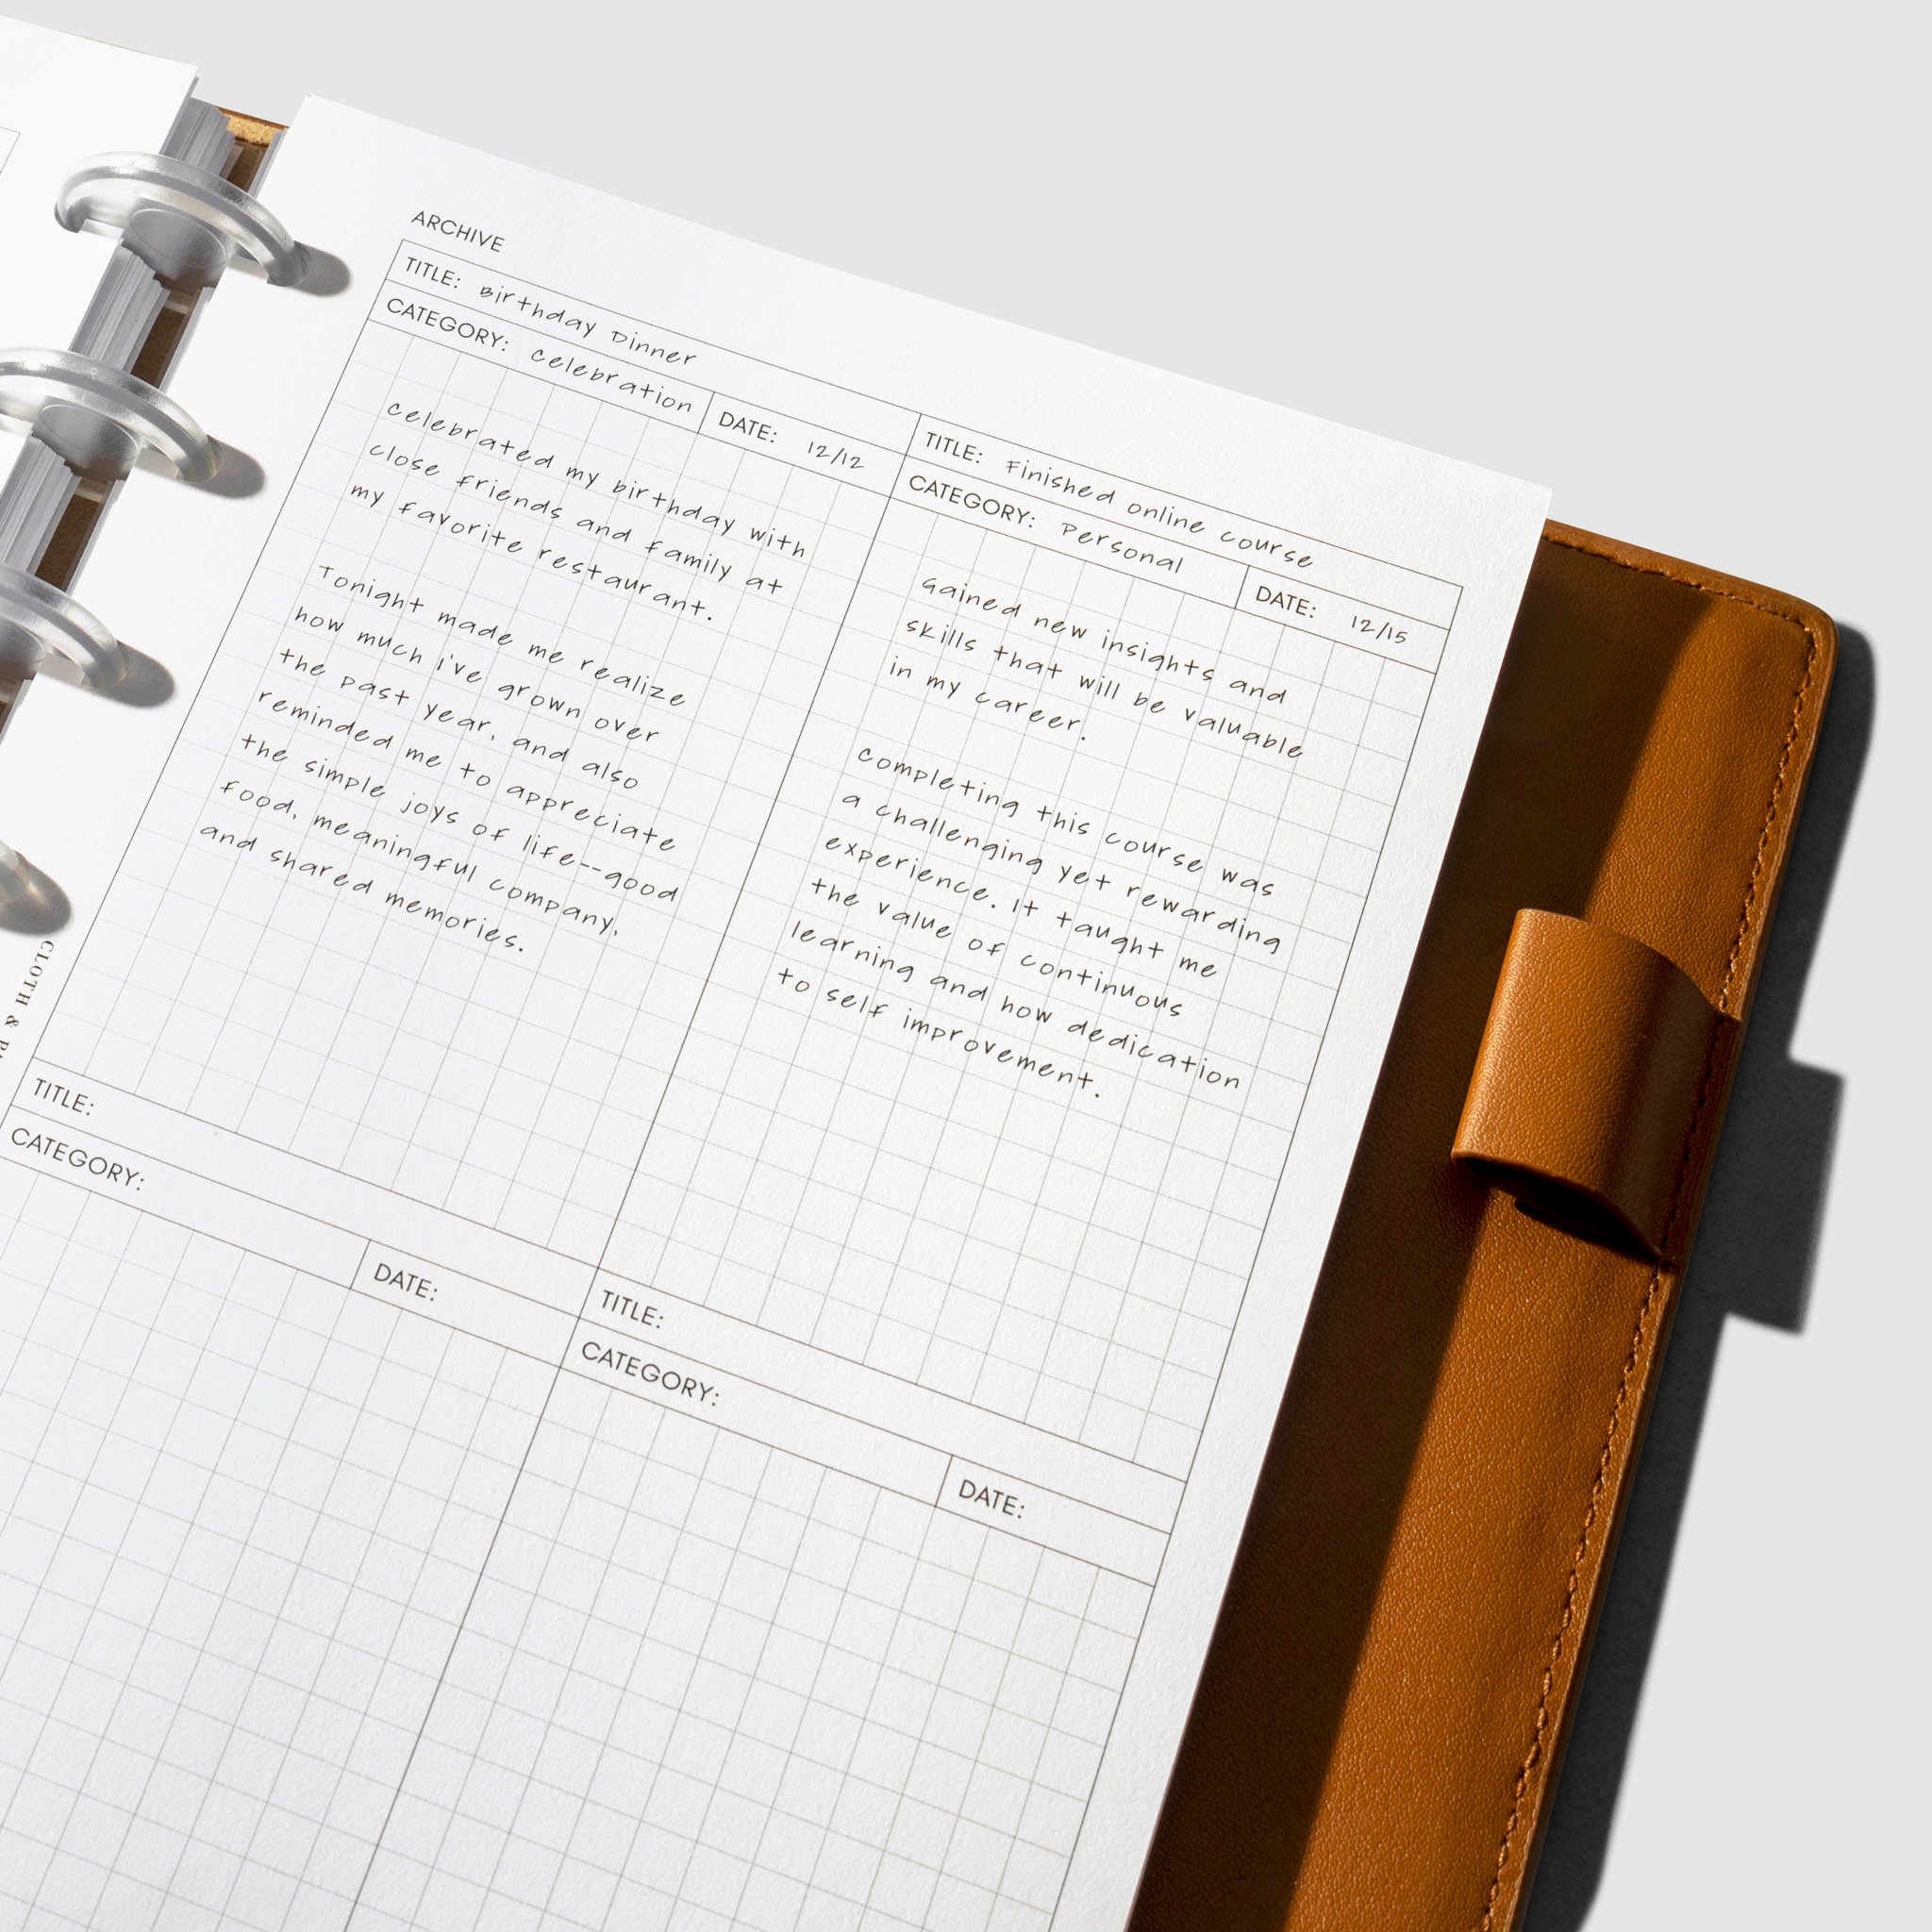 ARCHIVE
TITLE: Birthday Dinner
CATEGORY: Celebration
DATE: 12/12
Celebrated my birthday with
close friends and family at
my favorite restaurant.
Tonight made me realize
how much i've grown over
the past year, and also
reminded me to appreciate
the simple joys of life--good
food, meaningful company,
and shared memories.
TITLE: Finished online course
CATEGORY: Personal
DATE: 12/15
Gained new insights and
skills that will be valuable
in my career.
Completing this course was
a challenging yet rewarding
experience. It taught me
the value of continuous
learning and how dedication
to self improvement.
TITLE:
CATEGORY:
DATE:
TITLE:
CATEGORY:
DATE:
CLOTH &